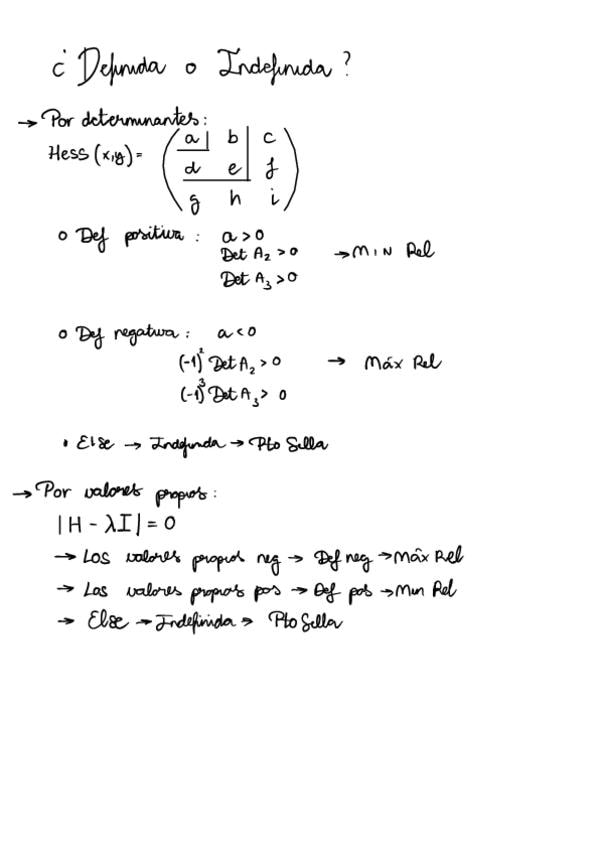 ¿Definida o Indefinida?
→ Por determinantes:
Hess (x,y) = ( a b c
d e f
g h i )
○ Def positiva: a > 0
Det A₂ > 0 → MIN Rel
Det A₃ > 0
○ Def negativa: a < 0
(-1)² Det A₂ > 0 → Máx Rel
(-1)³ Det A₃ > 0
• Else → Indefinida → Pto Silla
→ Por valores propios:
|H - λI| = 0
→ Los valores propios neg → Def neg → Máx Rel
→ Los valores propios pos → Def pos → Min Rel
→ Else → Indefinida → Pto Silla